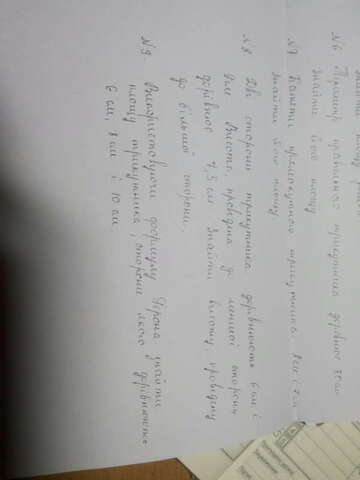 знайти площу
№6 Периметр правильного трикутника дорівнює
Знайти його площу
№7 Катети прямокутного трикутника 8см і 7см
Знайти його площу.
№8. Дві сторони трикутника дорівнюють 6 см і
8см. Висота, проведена до меншої сторони
дорівнює 7,5 см. Знайти висоту, проведену
до більшої сторони.
№9. Використовуючи формулу Герона знайти
площу трикутника, сторони якого дорівнюють
6 см, 8 см і 10 см.